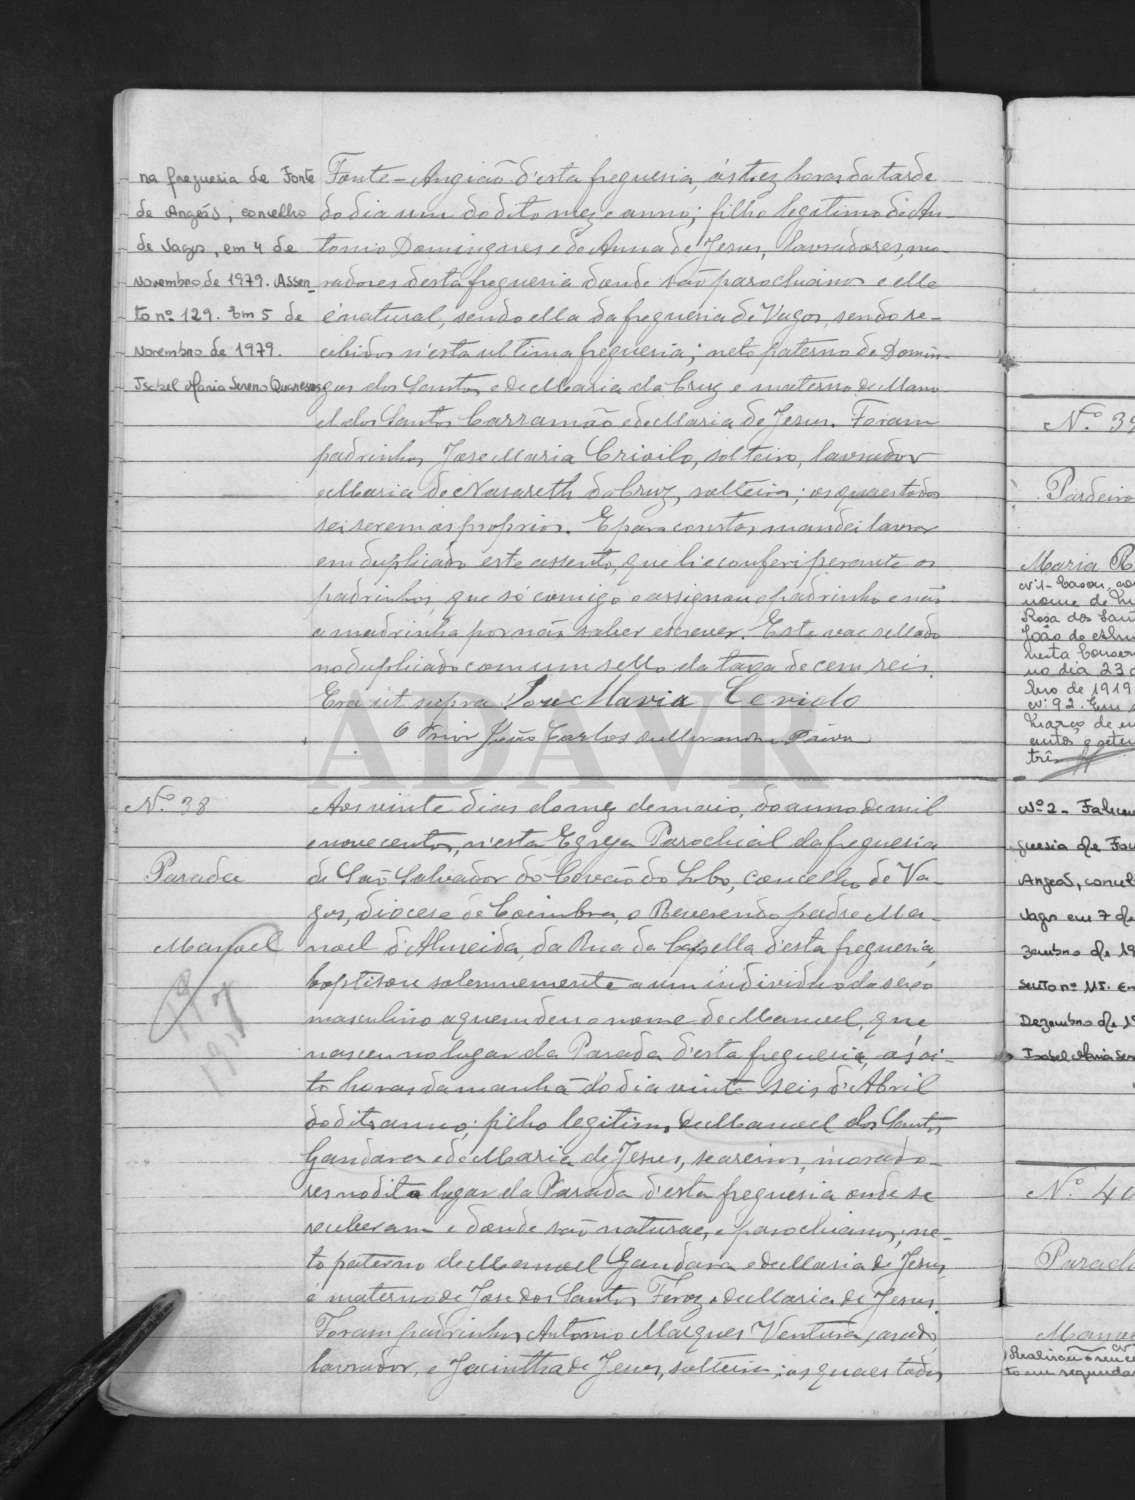 na freguesia de Fonte
de Angeão, concelho
de Vagos, em 4 de
Novembro de 1979. Assen-
to nº 129. Em 5 de
Novembro de 1979.
Isabel Maria Sereno Quaresma
Fonte-Angião d'esta freguesia, ás trez horas da tarde
do dia um do dito mez e anno; filho legitimo de An-
tonio Domingues e de Anna de Jesus, lavradores, mo-
radores desta freguesia donde são parochianos e elle
é natural, sendo ella da freguesia de Vagos, sendo re-
cebidos n'esta ultima freguesia; neto paterno de Domin-
gos dos Santos e de Maria da Cruz e materno de Mano
el dos Santos Carramão e de Maria de Jesus. Foram
padrinhos José Maria Crivilo, solteiro, lavrador
e Maria de Nasareth da Cruz, solteira; os quaes todos
sei serem os proprios. E para constar mandei lavrar
em duplicado este assento, que li e conferi perante os
padrinhos, que só comigo o assignou o padrinho e não
a madrinha por não saber escrever. Este vae sellado
no duplicado com um sello da taxa de cem reis.
Era ut supra. José Maria Cerido
O Prior João Carlos de Miranda Paiva
Nº 38
Parada
Manoel
Aos vinte dias do mez de maio, do anno de mil
e novecentos, n'esta Egreja Parochial da freguesia
de São Salvador do Covão do Lobo, concelho de Va-
gos, diocese de Coimbra, o Reverendo padre Ma-
noel d'Almeida, da Rua da Capella d'esta freguesia,
baptisou solemnemente a um individuo do sexo
masculino a quem deu o nome de Manoel, que
nasceu no lugar da Parada d'esta freguesia, ás oi-
to horas da manhã do dia vinte seis d'Abril
do dito anno; filho legitimo de Manoel dos Santos
Gandara e de Maria de Jesus, seareiros, morado-
res no dito lugar da Parada d'esta freguesia onde se
receberam e donde são naturaes, e parochianos; ne-
to paterno de Manoel Gandara e de Maria de Jesus
e materno de José dos Santos Feroz e de Maria de Jesus.
Foram padrinhos Antonio Marques Ventura, casado,
lavrador, e Jacintha de Jesus, solteira; os quaes todos
ADAVR
Nº 39
Pardeiro
Maria R
Nº 1 - Casou
nome de
Rosa dos San
João de
nesta Conser
no dia 23
bro de 1919
nº 92. Em
Março de
entos e seten
três
Nº 2 - Falec
guesia de Fon
Angeão, concel
Vagos em 7 de
zembro de 19
sento nº 115. Em
Dezembro de 19
Isabel Maria Ser
Nº 40
Parada
Mano